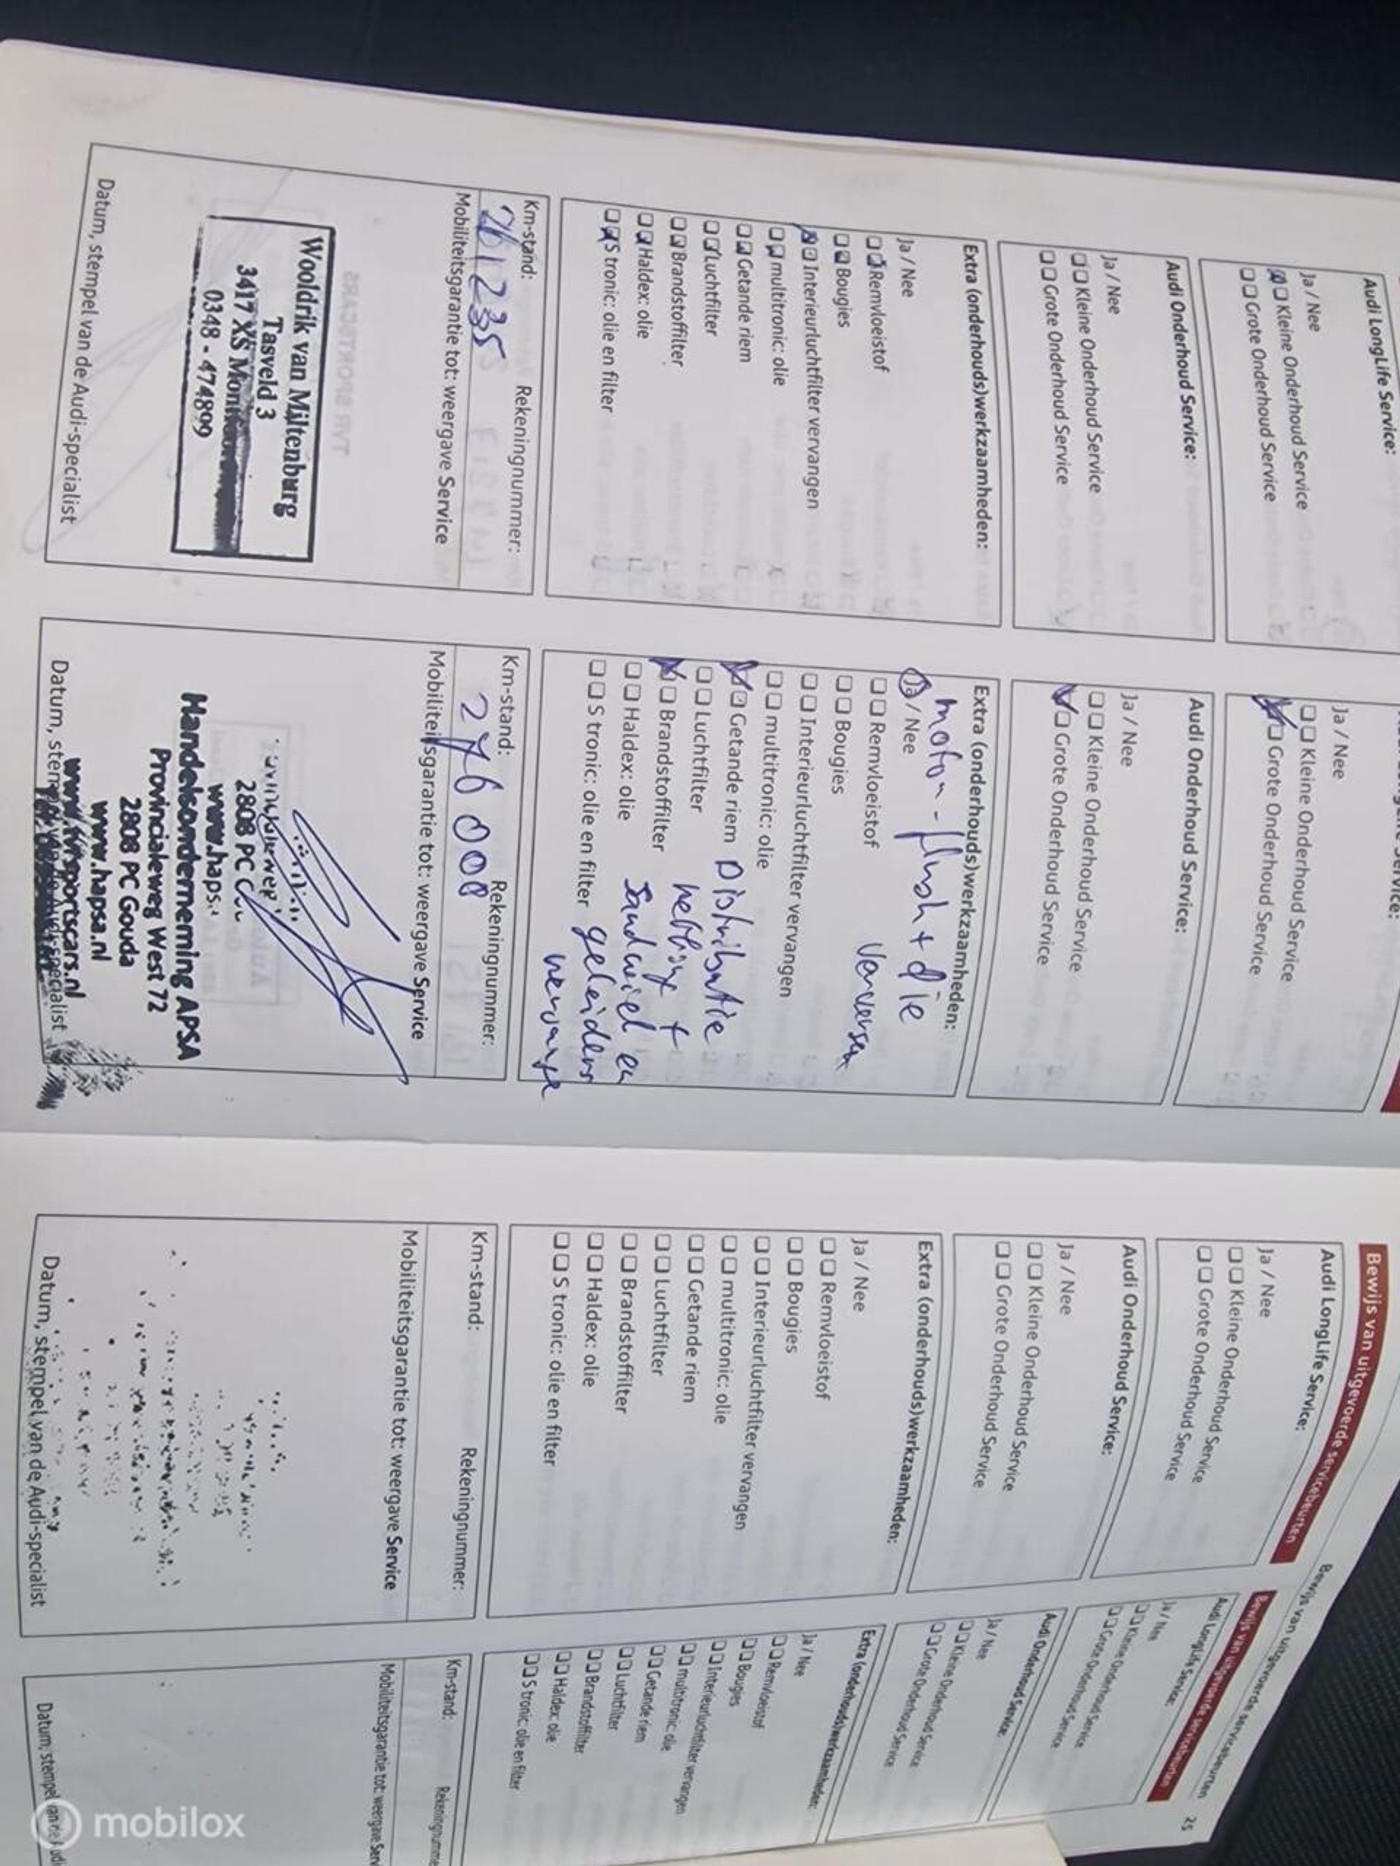 Audi LongLife Service:
Ja / Nee
Kleine Onderhoud Service
Grote Onderhoud Service
Audi Onderhoud Service:
Ja / Nee
Kleine Onderhoud Service
Grote Onderhoud Service
Extra (onderhouds)werkzaamheden:
Ja / Nee
Remvloeistof
Bougies
Interieurluchtfilter vervangen
multitronic: olie
Getande riem
Luchtfilter
Brandstoffilter
Haldex: olie
S tronic: olie en filter
Km-stand: Rekeningnummer:
261235
Mobiliteitsgarantie tot: weergave Service
Wooldrik van Miltenburg
Tasveld 3
3417 XS
0348 - 474899
Datum, stempel van de Audi-specialist
Ja / Nee
Kleine Onderhoud Service
Grote Onderhoud Service
Audi Onderhoud Service:
Ja / Nee
Kleine Onderhoud Service
Grote Onderhoud Service
Extra (onderhouds)werkzaamheden:
motor - flush + olie
Ja / Nee
verversen
Remvloeistof
Bougies
Interieurluchtfilter vervangen
multitronic: olie
Getande riem Distributie
Luchtfilter
Brandstoffilter
Haldex: olie
S tronic: olie en filter geleiders
Km-stand: Rekeningnummer:
276000
Mobiliteitsgarantie tot: weergave Service
2808 PC
www.haps
Handelsonderneming APSA
Provincialeweg West 72
2808 PC Gouda
www.hapsa.nl
www.tvrsportscars.nl
Datum, stempel van de Audi-specialist
Bewijs van uitgevoerde servicebeurten
Audi LongLife Service:
Ja / Nee
Kleine Onderhoud Service
Grote Onderhoud Service
Audi Onderhoud Service:
Ja / Nee
Kleine Onderhoud Service
Grote Onderhoud Service
Extra (onderhouds)werkzaamheden:
Ja / Nee
Remvloeistof
Bougies
Interieurluchtfilter vervangen
multitronic: olie
Getande riem
Luchtfilter
Brandstoffilter
Haldex: olie
S tronic: olie en filter
Km-stand: Rekeningnummer:
Mobiliteitsgarantie tot: weergave Service
Datum, stempel van de Audi-specialist
Bewijs van uitgevoerde servicebeurten
25
Bewijs van uitgevoerde servicebeurten
Audi LongLife Service:
Ja / Nee
Kleine Onderhoud Service
Grote Onderhoud Service
Audi Onderhoud Service:
Ja / Nee
Kleine Onderhoud Service
Grote Onderhoud Service
Extra (onderhouds)werkzaamheden:
Ja / Nee
Remvloeistof
Bougies
Interieurluchtfilter vervangen
multitronic: olie
Getande riem
Luchtfilter
Brandstoffilter
Haldex: olie
S tronic: olie en filter
Km-stand:
Mobiliteitsgarantie tot: weergave
Datum, stempel
mobilox